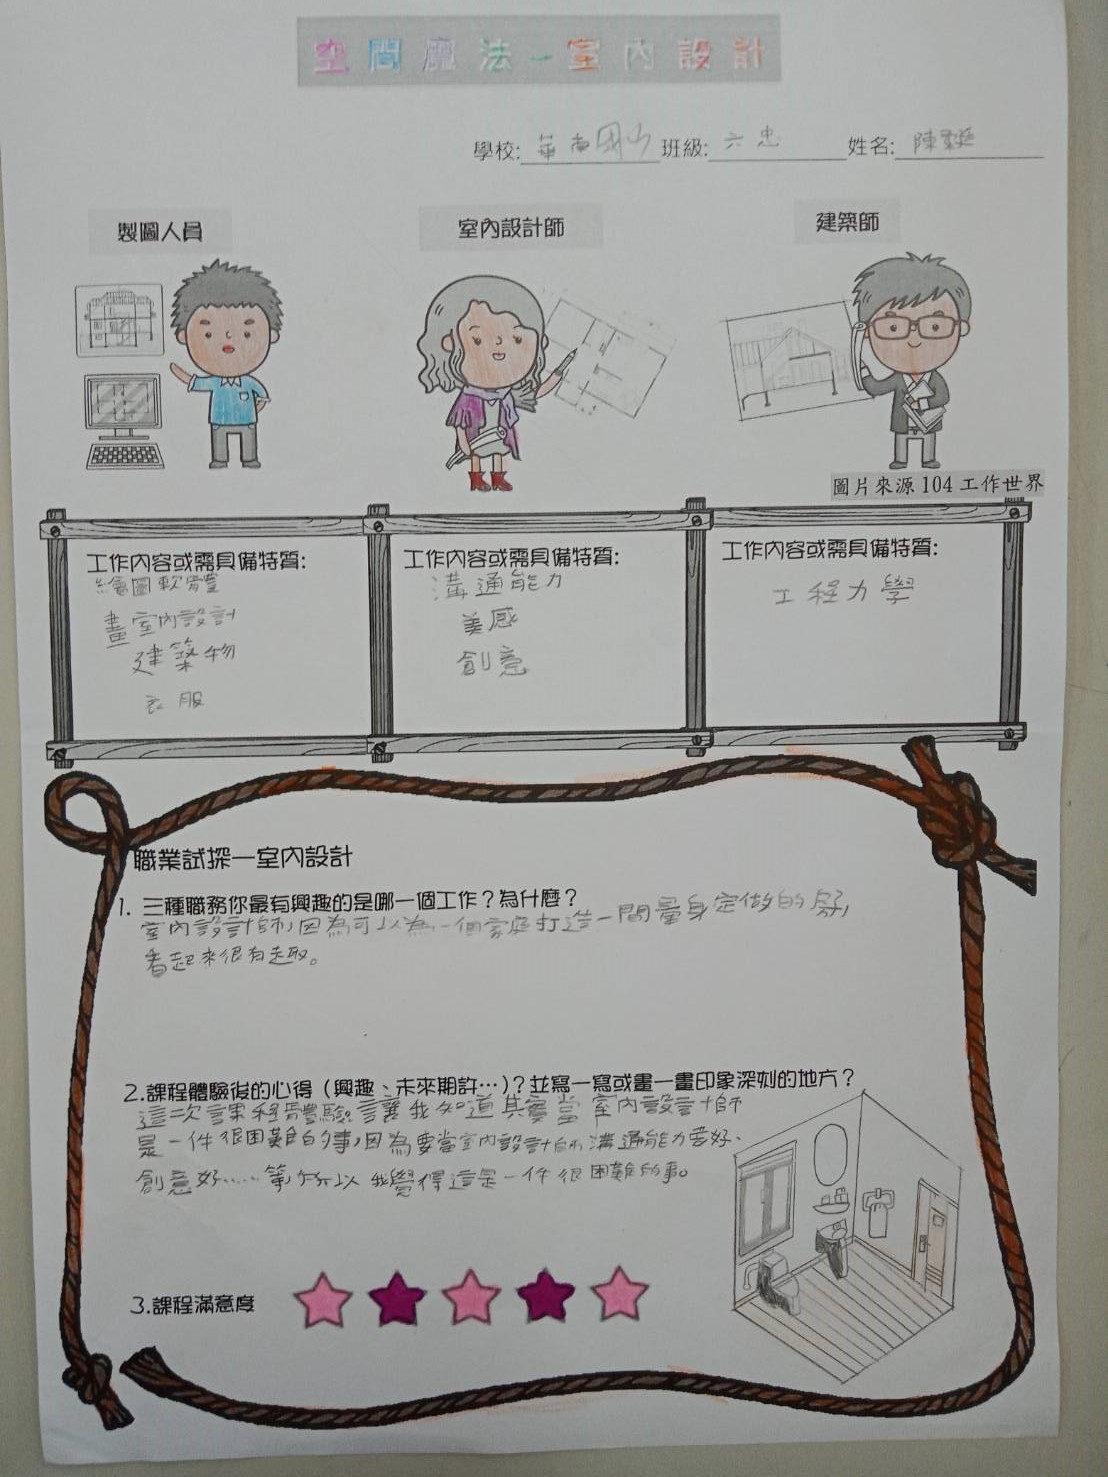 空間魔法-室內設計
學校: 華南國小 班級: 六忠 姓名: 陳
製圖人員 室內設計師 建築師
圖片來源 104 工作世界
工作內容或需具備特質:
繪圖軟體
畫室內設計
建築物
衣服
工作內容或需具備特質:
溝通能力
美感
創意
工作內容或需具備特質:
工程力學
職業試探—室內設計
1. 三種職務你最有興趣的是哪一個工作？為什麼？
室內設計師,因為可以為一個家庭打造一間量身定做的房,
看起來很有趣。
2.課程體驗後的心得 (興趣、未來期許…)？並寫一寫或畫一畫印象深刻的地方？
這次課程體驗讓我知道其實當室內設計師
是一件很困難的事,因為要當室內設計師溝通能力要好、
創意好……等,所以我覺得這是一件很困難的事。
3.課程滿意度